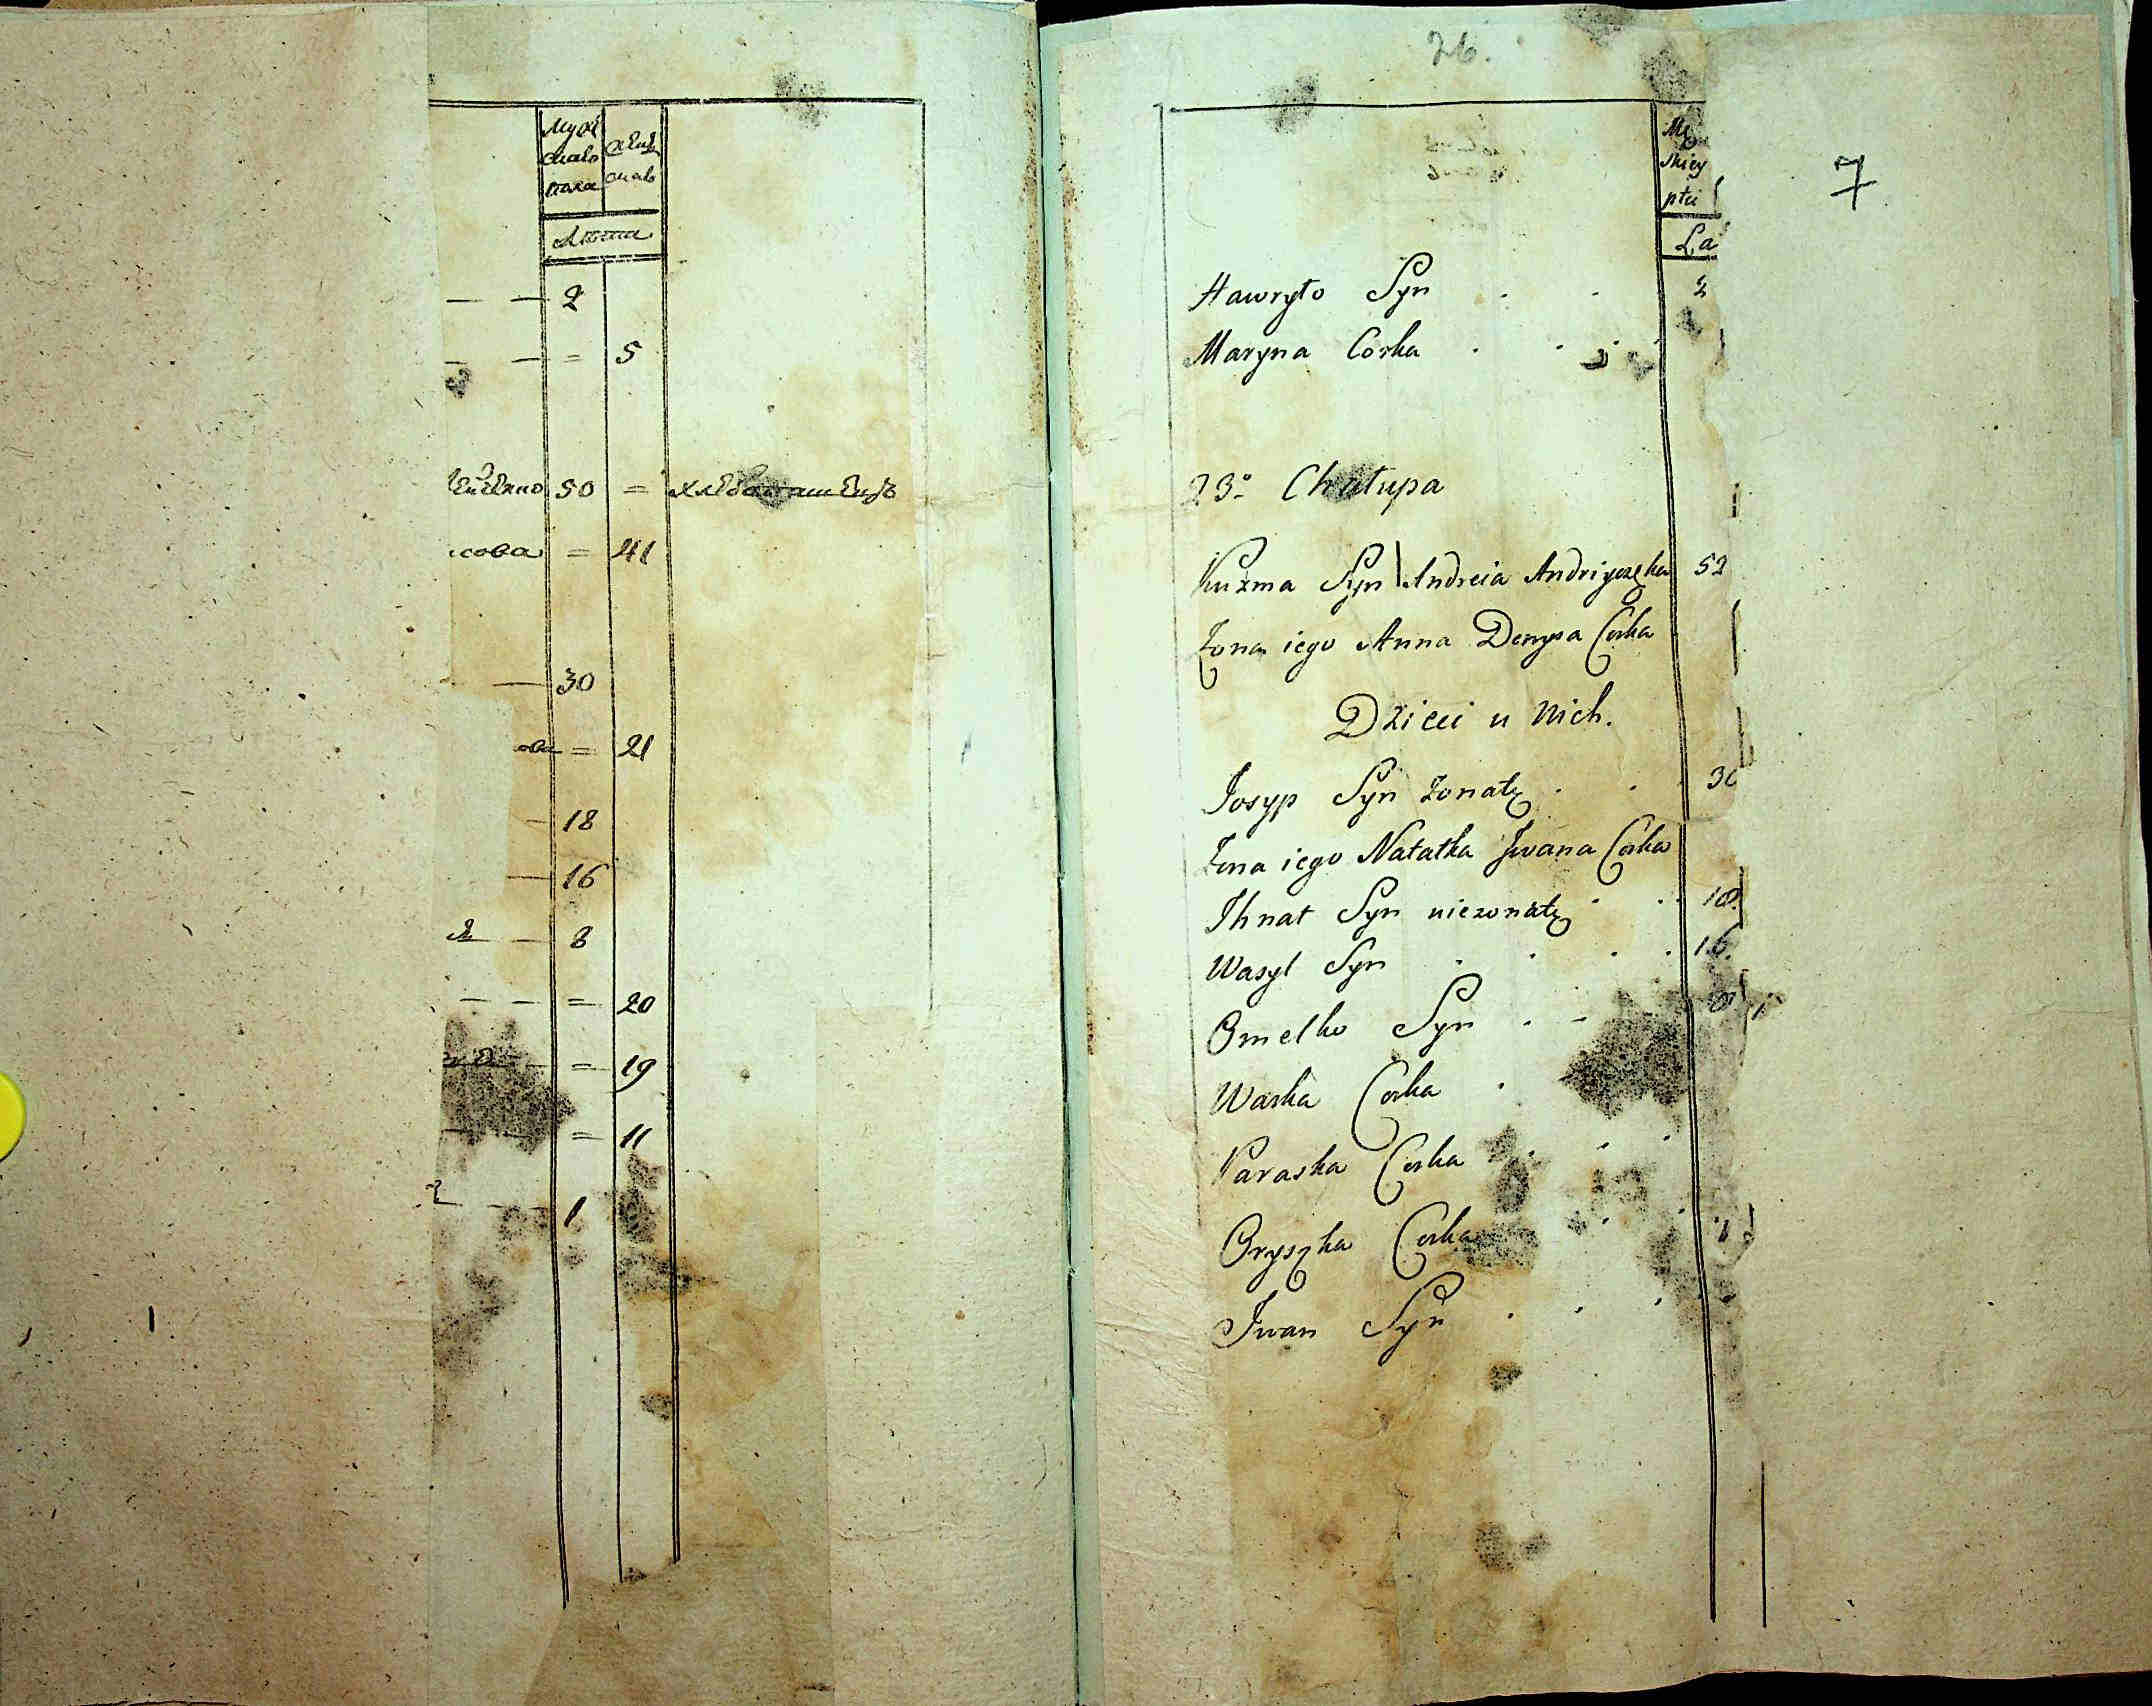 Муже
скаго
пола
Жен
скаго
Лѣта
— — 2
— — = 5
50 = хлебопашецъ
сова = 41
— 30
ова = 21
— 18
— 16
— 8
— — = 20
— = 19
— = 11
— 1
26.
7
Mę
skiey
płci
La
Hawryło Syn . . 2
Maryna Corka . . .
23o Chałupa
Kuzma Syn Andreia Andriyczęka 52
Zona iego Anna Denysa Corka
Dzieci u Nich.
Josyp Syn zonaty . . . 30
Zona iego Natalka Jwana Corka
Ihnat Syn niezonaty . . 18.
Wasyl Syn . . . . 16.
Omelko Syn . . 8
Waska Corka .
Paraska Corka . . .
Oryszka Corka . . 1
Jwan Syn . . .